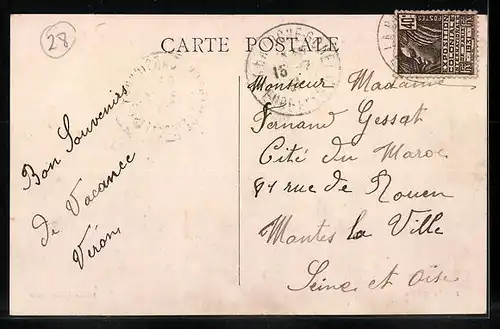 28
CARTE POSTALE
Bon Souvenirs
de Vacance
Véron
Monsieur Madame
Fernand Gessat
Cité du Maroc
81 rue de Rouen
Mantes la Ville
Seine et Oise
40c
POSTES
EXPOSITION
COLONIALE
15